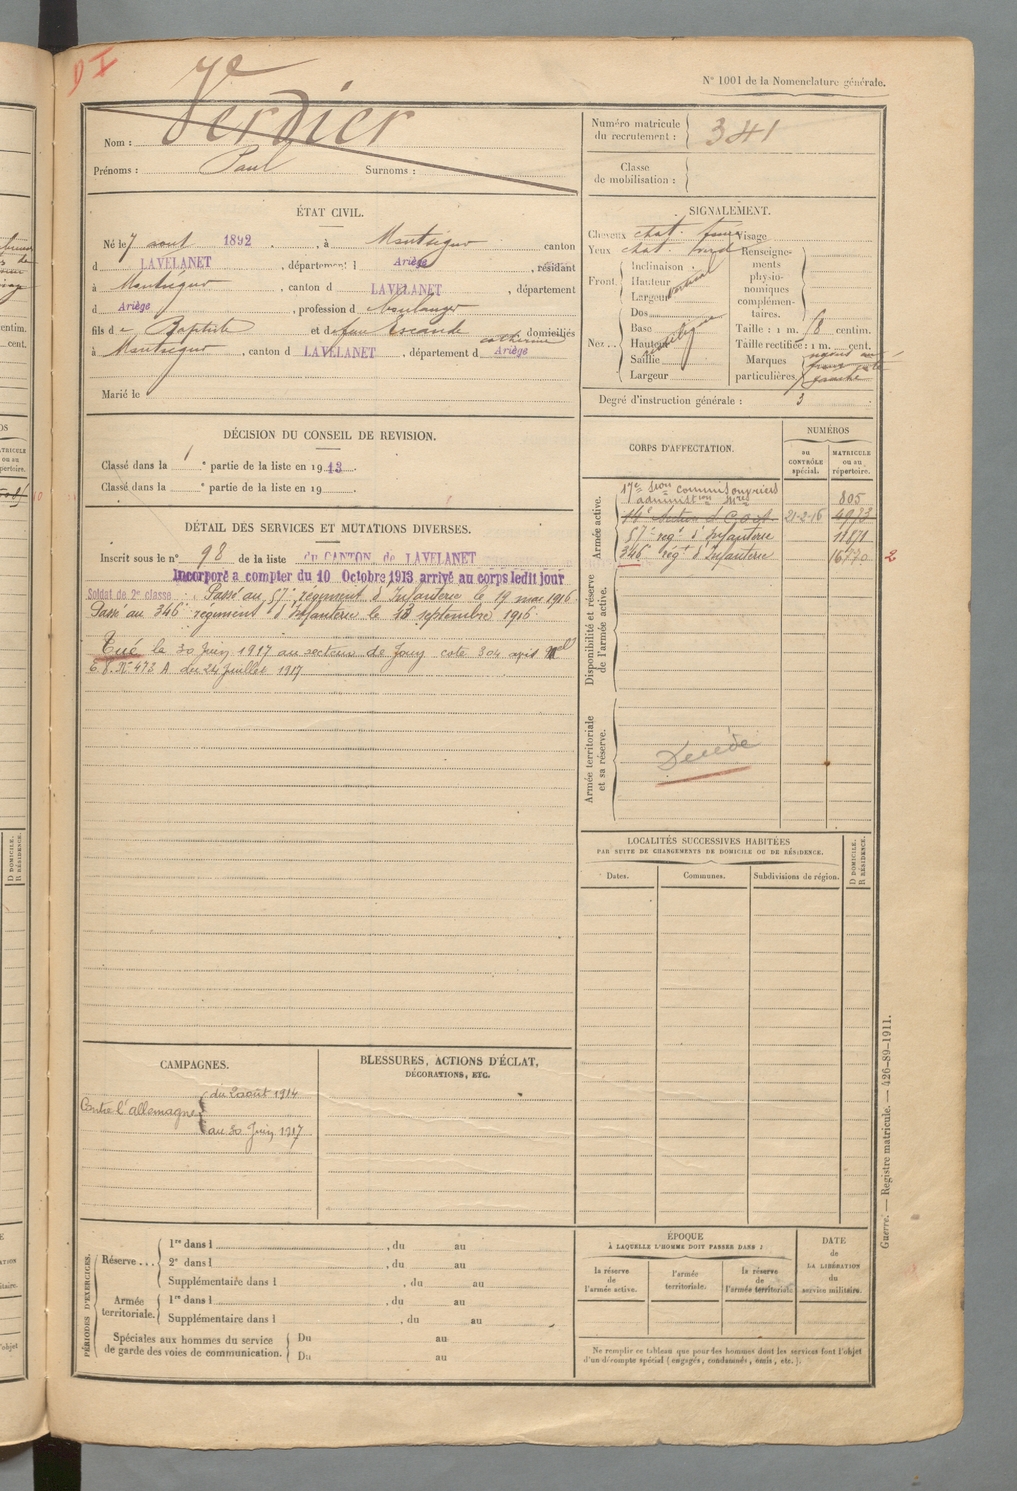 N° 1001 de la Nomenclature générale.
7e
Nom : Verdier
Prénoms : Paul Surnoms :
Numéro matricule du recrutement : 341
Classe de mobilisation :
ÉTAT CIVIL.
Né le 7 aout 1892, à Montségur canton
d LAVELANET, département d Ariège, résidant
à Montségur, canton d LAVELANET, département
d Ariège, profession d boulanger
fils de Baptiste et de feue Escande Catherine domiciliés
à Montségur, canton d LAVELANET, département d Ariège
Marié le
SIGNALEMENT.
Cheveux chat. foncé Visage
Yeux chat. Renseigne-
ments
physio-
nomiques
complémen-
taires.
Front. Inclinaison
Hauteur
Largeur
vertical
Nez... Dos
Base
Hauteur
Saillie
Largeur
Taille : 1 m. 68 centim.
Taille rectifiée : 1 m. cent.
Marques particulières. gauche
Degré d'instruction générale : 3
DÉCISION DU CONSEIL DE REVISION.
Classé dans la 1e partie de la liste en 1913.
Classé dans la e partie de la liste en 19
DÉTAIL DES SERVICES ET MUTATIONS DIVERSES.
Inscrit sous le n° 98 de la liste du CANTON de LAVELANET
Incorporé à compter du 10 Octobre 1913 arrivé au corps ledit jour
Soldat de 2e classe. Passé au 57e régiment d'Infanterie le 19 mai 1916.
Passé au 346e régiment d'Infanterie le 13 septembre 1916.
Tué le 30 Juin 1917 au secteur de Jouy cote 304 avis mel
E.C. N° 473 A du 24 Juillet 1917
CORPS D'AFFECTATION.
NUMÉROS
au CONTRÔLE spécial.
MATRICULE ou au répertoire.
Armée active.
17e Son commis ouvriers
administon mres 805
14e Section d C.O.A. 21-2-16 4973
57e regt d'Infanterie 11871
346e regt d'Infanterie 16770 2
Disponibilité et réserve de l'armée active.
Armée territoriale et sa réserve.
Décédé
LOCALITÉS SUCCESSIVES HABITÉES
PAR SUITE DE CHANGEMENTS DE DOMICILE OU DE RÉSIDENCE.
Dates. Communes. Subdivisions de région. D DOMICILE. R RÉSIDENCE.
CAMPAGNES.
Contre l'allemagne du 2 août 1914
au 30 Juin 1917
BLESSURES, ACTIONS D'ÉCLAT,
DÉCORATIONS, ETC.
PÉRIODES D'EXERCICES.
Réserve... 1re dans l , du au
2e dans l , du au
Supplémentaire dans l , du au
Armée territoriale. 1re dans l , du au
Supplémentaire dans l , du au
Spéciales aux hommes du service
de garde des voies de communication. Du au
Du au
ÉPOQUE
À LAQUELLE L'HOMME DOIT PASSER DANS :
la réserve de l'armée active.
l'armée territoriale.
la réserve de l'armée territoriale
DATE de LA LIBÉRATION du service militaire.
Ne remplir ce tableau que pour des hommes dont les services font l'objet
d'un décompte spécial (engagés, condamnés, omis, etc.).
Guerre. — Registre matricule. — 426-89-1911.